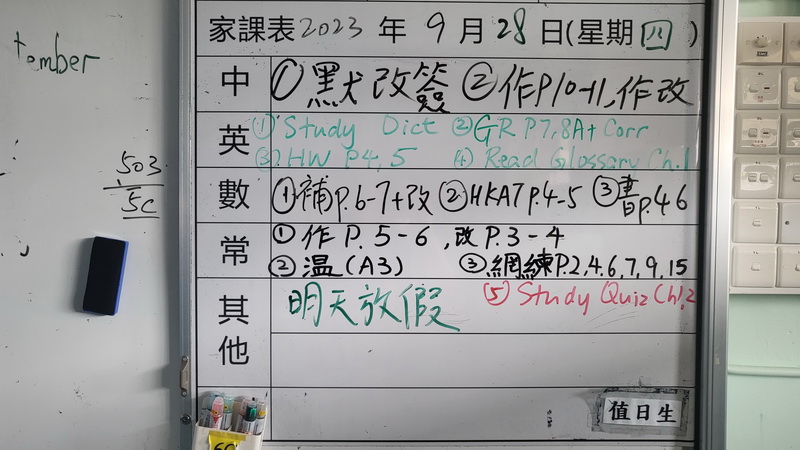 tember
503
5C
家課表2023年9月28日(星期四)
中 ①默改簽 ②作P10-11,作改
英 ①Study Dict ②GR P7,8A+Corr
③HW P4,5 ④Read Glossary Ch.1
數 ①補P.6-7+改 ②HKAT P.4-5 ③書P.46
常 ①作P.5-6,改P.3-4
②温(A3) ③網練P.2,4,6,7,9,15
其他 明天放假 ⑤Study Quiz Ch1.2
值日生